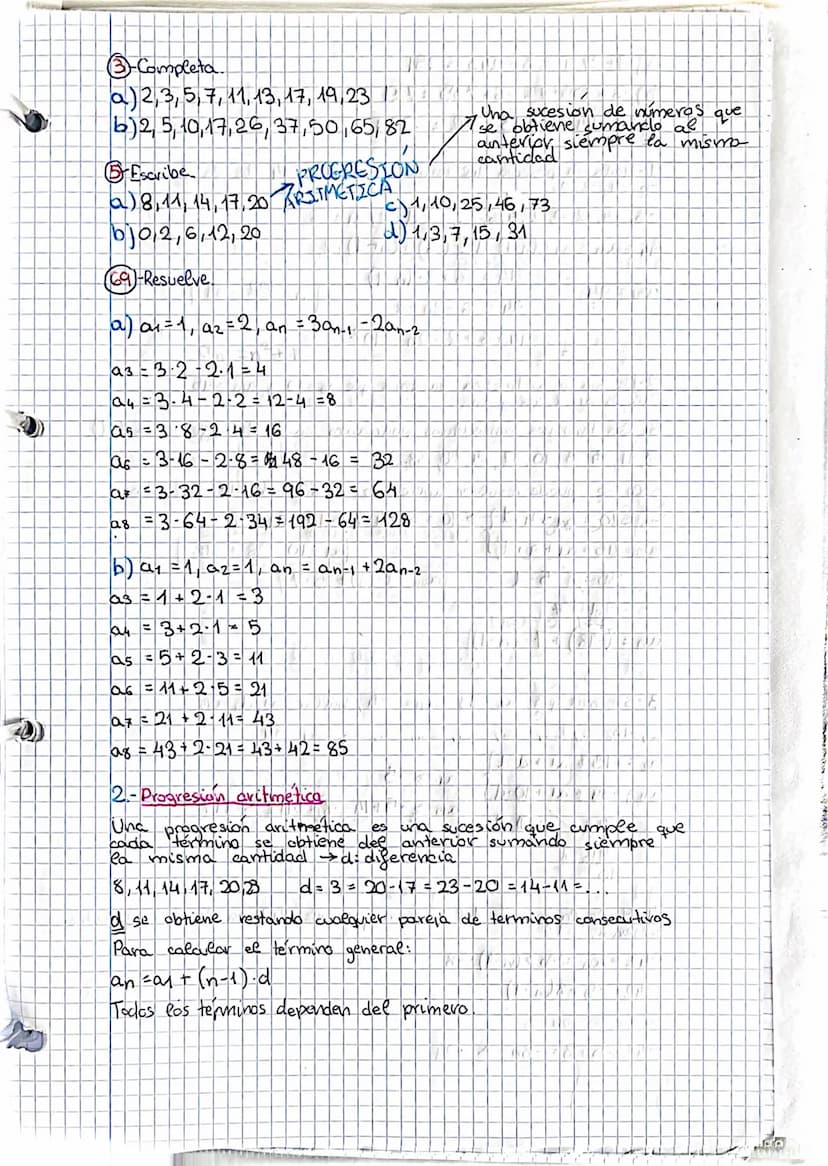 3-Completa.
a) 2, 3, 5, 7, 11, 13, 17, 19, 23
b) 2, 5, 10, 17, 26, 37, 50, 65, 82
Una sucesión de números que
se obtiene sumando al
anterior siempre la misma
cantidad
5-Escribe
PROGRESIÓN
ARITMETICA
a) 8, 11, 14, 17, 20
c) 1, 10, 25, 46, 73
b) 0, 2, 6, 12, 20
d) 1, 3, 7, 15, 31
69-Resuelve.
a) a1 = 1, a2 = 2, an = 3an-1 - 2an-2
a3 = 3·2 - 2·1 = 4
a4 = 3·4 - 2·2 = 12-4 = 8
a5 = 3·8 - 2·4 = 16
a6 = 3·16 - 2·8 = 48 - 16 = 32
a7 = 3·32 - 2·16 = 96 - 32 = 64
a8 = 3·64 - 2·34 = 192 - 64 = 128
b) a1 = 1, a2 = 1, an = an-1 + 2an-2
a3 = 1 + 2·1 = 3
a4 = 3 + 2·1 = 5
a5 = 5 + 2·3 = 11
a6 = 11 + 2·5 = 21
a7 = 21 + 2·11 = 43
a8 = 43 + 2·21 = 43 + 42 = 85
2.- Progresión aritmética
Una progresión aritmética es una sucesión que cumple que
cada término se obtiene del anterior sumando siempre
la misma cantidad → d: diferencia
8, 11, 14, 17, 20, 23 d = 3 = 20-17 = 23-20 = 14-11 = ...
d se obtiene restando cualquier pareja de terminos consecutivos
Para calcular el término general:
an = a1 + (n-1)·d
Todos los términos dependen del primero.